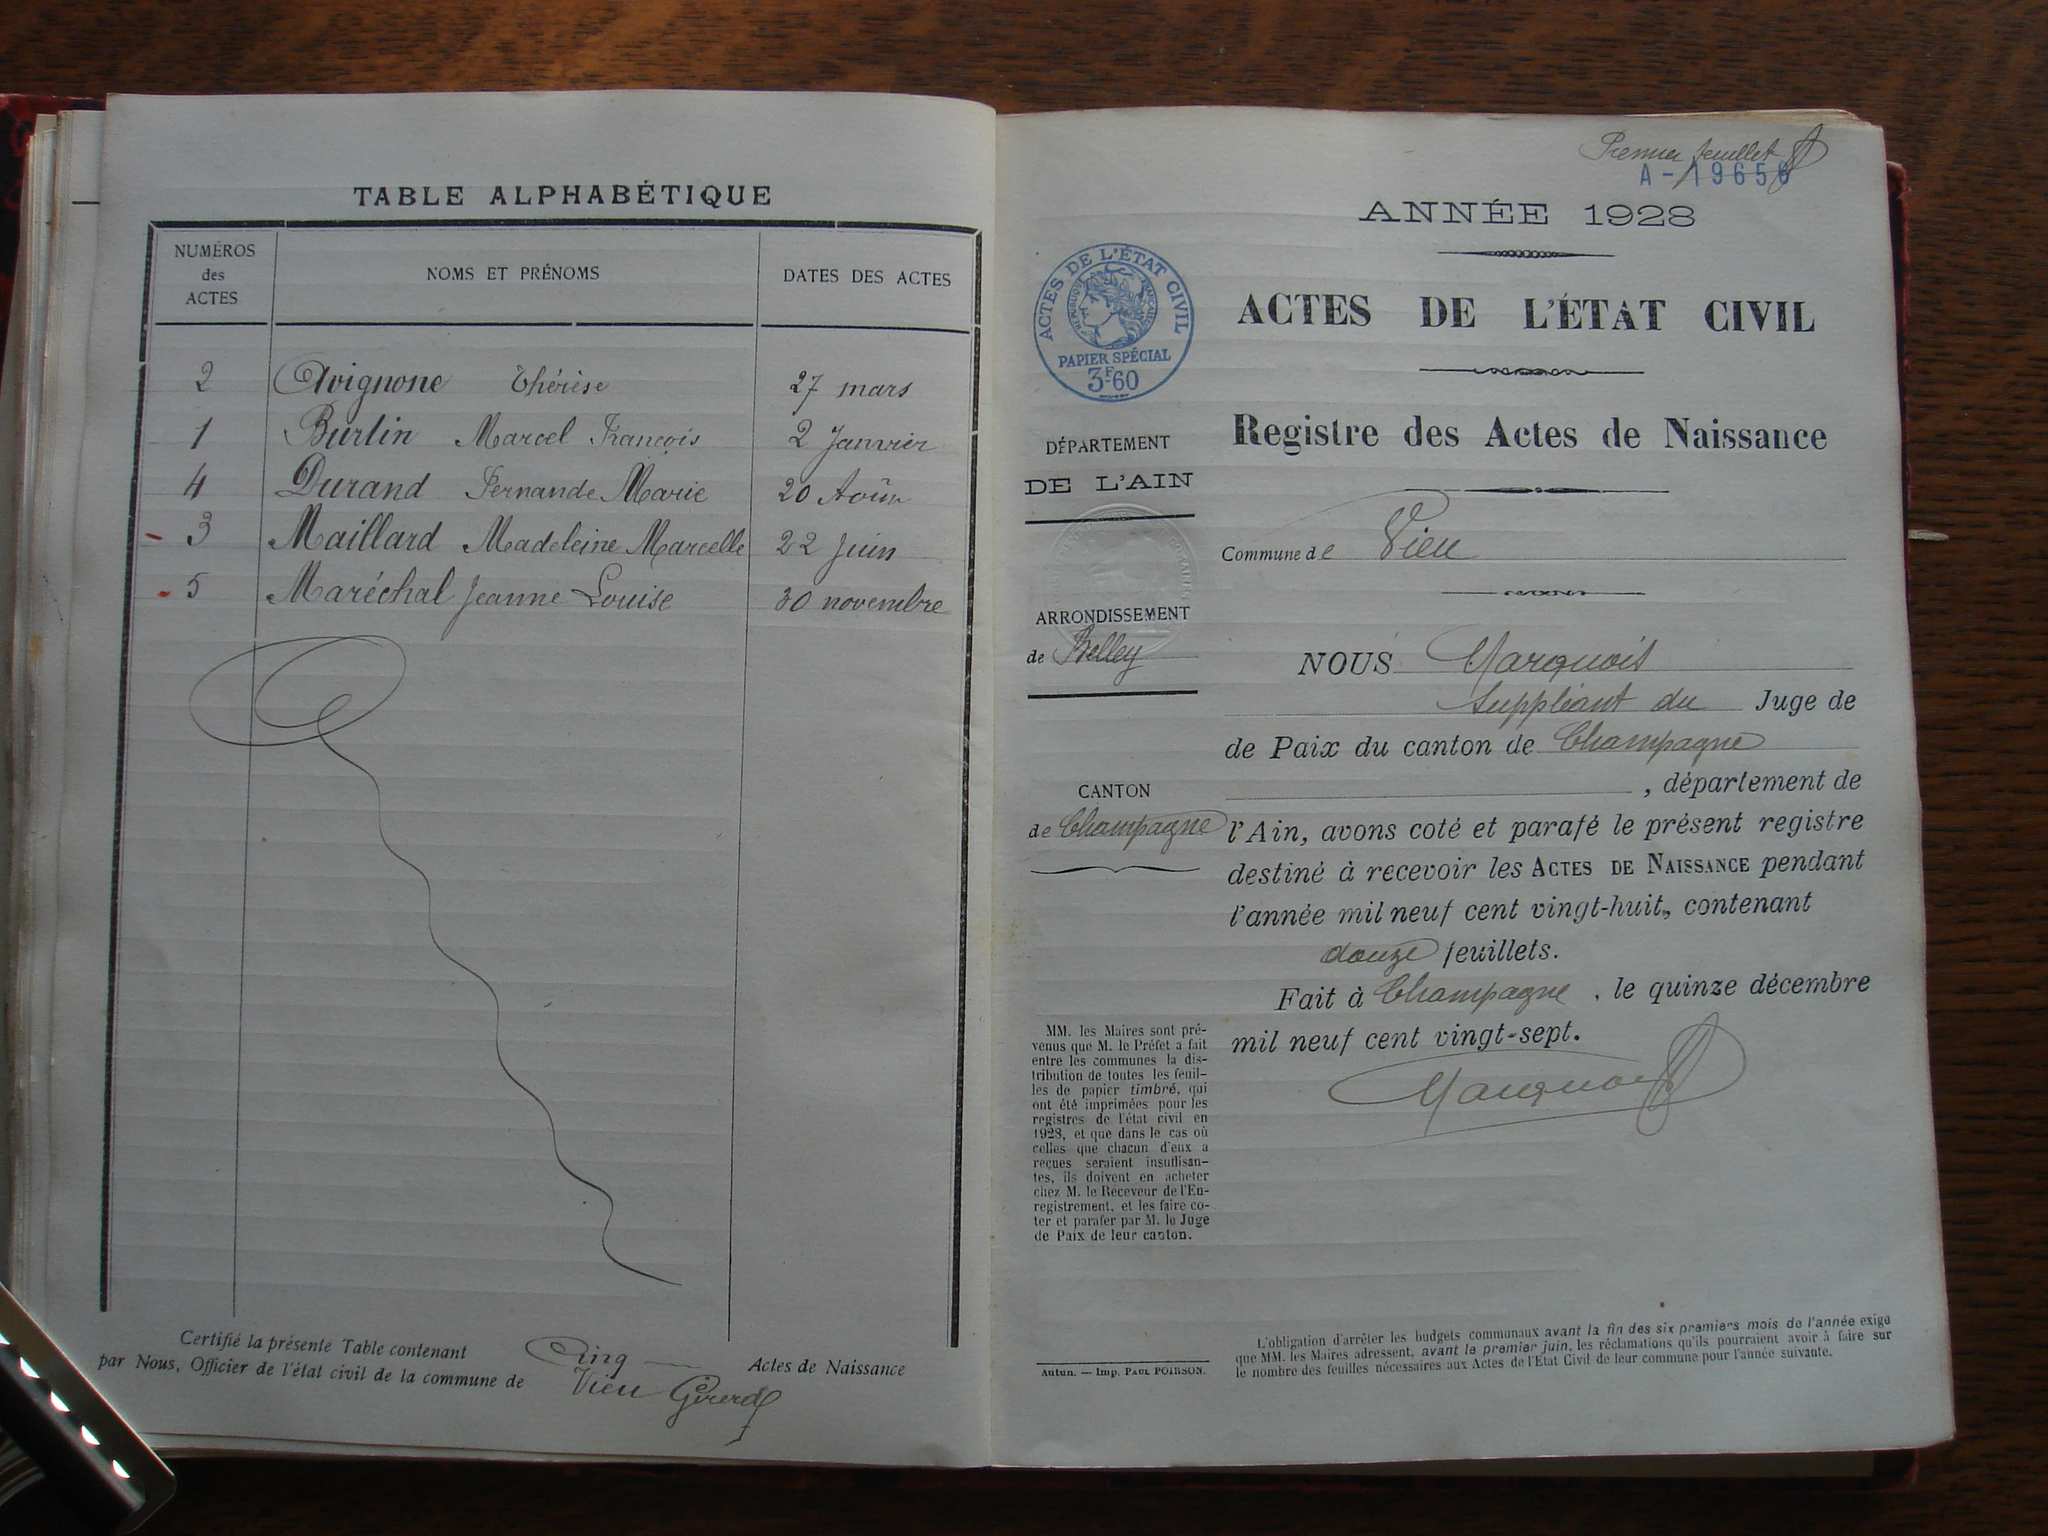 TABLE ALPHABÉTIQUE
NUMÉROS des ACTES
NOMS ET PRÉNOMS
DATES DES ACTES
2 Avignone Thérèse 27 mars
1 Burtin Marcel François 2 Janvier
4 Durand Fernande Marie 20 Août
3 Maillard Madeleine Marcelle 22 Juin
5 Maréchal Jeanne Louise 30 novembre
Certifié la présente Table contenant Cinq Actes de Naissance
par Nous, Officier de l'état civil de la commune de Vieu
Premier feuillet
A-19656
ANNÉE 1928
ACTES DE L'ÉTAT CIVIL
RÉPUBLIQUE FRANÇAISE
PAPIER SPÉCIAL
3F60
ACTES DE L'ÉTAT CIVIL
Registre des Actes de Naissance
DÉPARTEMENT
DE L'AIN
Commune de Vieu
ARRONDISSEMENT
de Belley
CANTON
de Champagne
NOUS Marquois
Suppléant du Juge de
de Paix du canton de Champagne
, département de
l'Ain, avons coté et parafé le présent registre
destiné à recevoir les ACTES DE NAISSANCE pendant
l'année mil neuf cent vingt-huit, contenant
douze feuillets.
Fait à Champagne, le quinze décembre
mil neuf cent vingt-sept.
Marquois
MM. les Maires sont pré-
venus que M. le Préfet a fait
entre les communes la dis-
tribution de toutes les feuil-
les de papier timbré, qui
ont été imprimées pour les
registres de l'état civil en
1928, et que dans le cas où
celles que chacun d'eux a
reçues seraient insuffisan-
tes, ils doivent en acheter
chez M. le Receveur de l'En-
registrement, et les faire co-
ter et parafer par M. le Juge
de Paix de leur canton.
Autun. — Imp. PAUL POIRSON.
L'obligation d'arrêter les budgets communaux avant la fin des six premiers mois de l'année exige
que MM. les Maires adressent, avant le premier juin, les réclamations qu'ils pourraient avoir à faire sur
le nombre des feuilles nécessaires aux Actes de l'Etat Civil de leur commune pour l'année suivante.